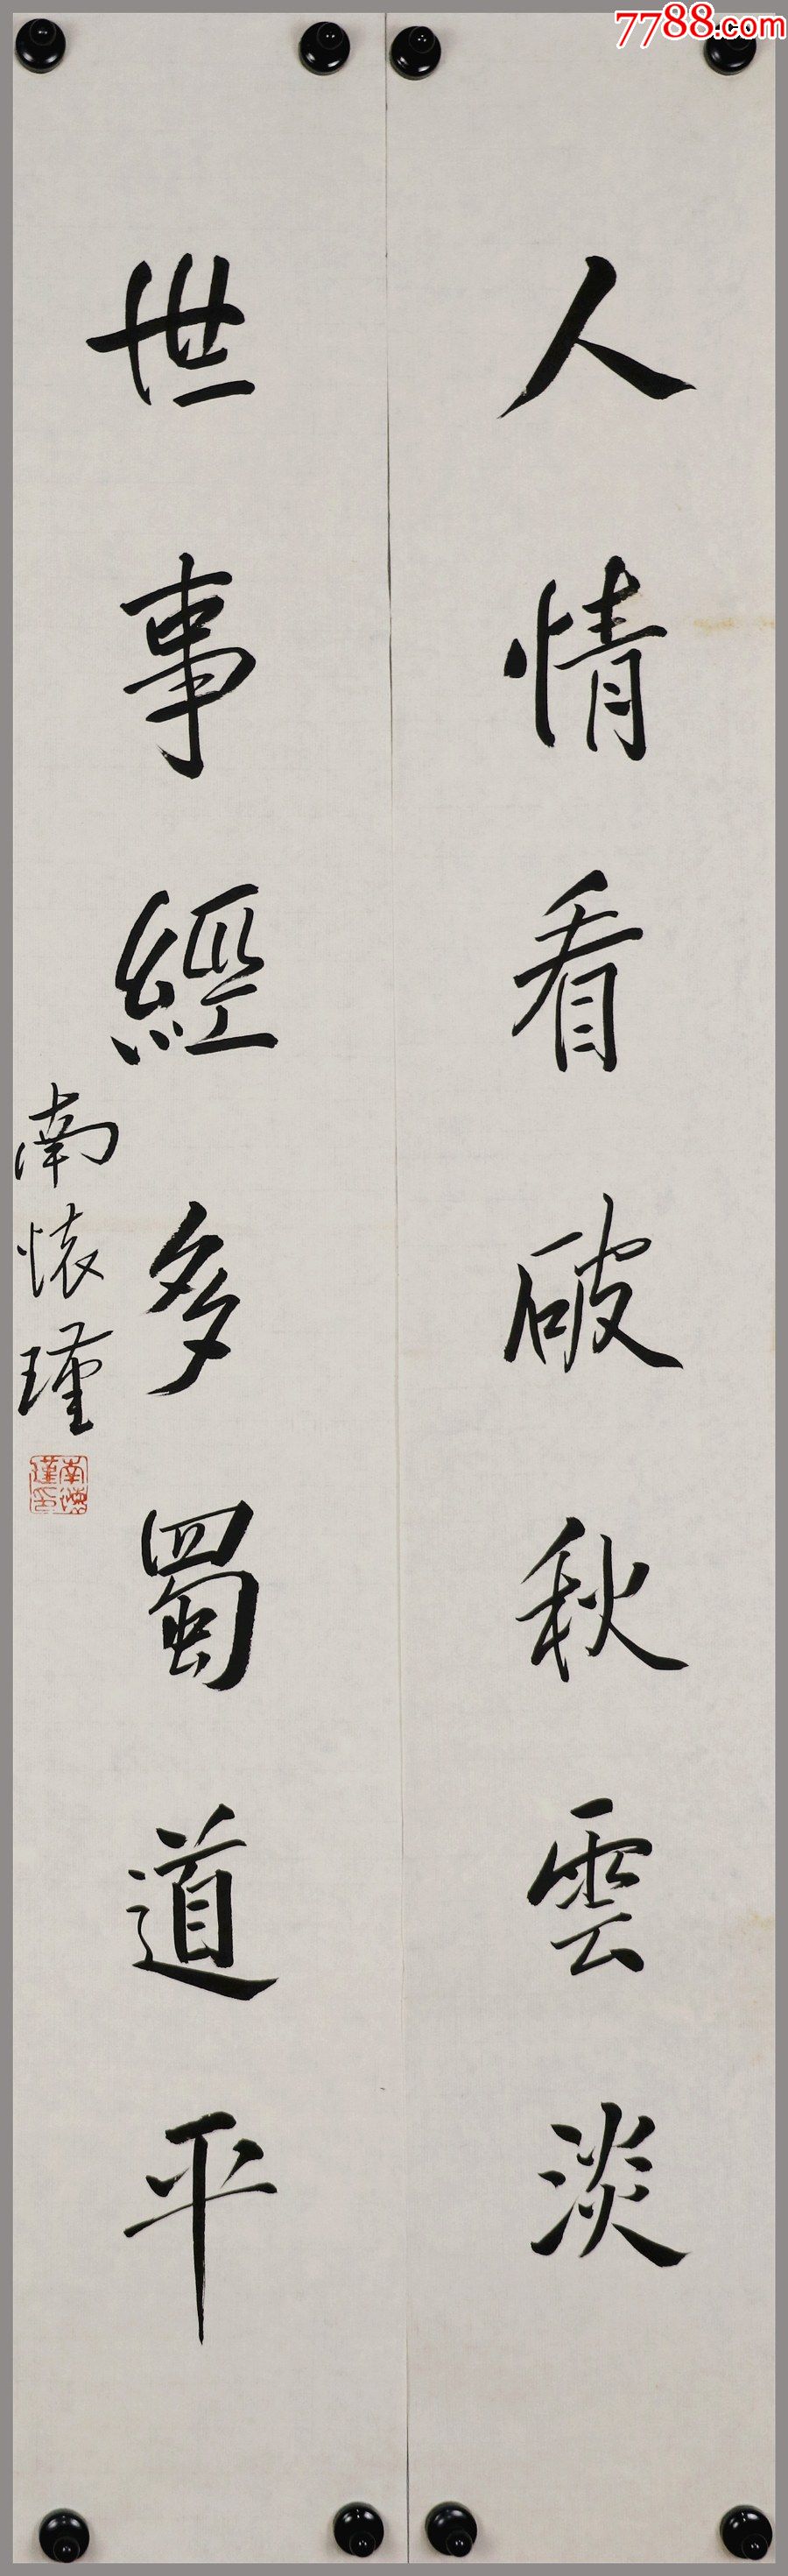 人情看破秋雲淡
世事經多蜀道平
南懷瑾
南懷瑾印
7788.com